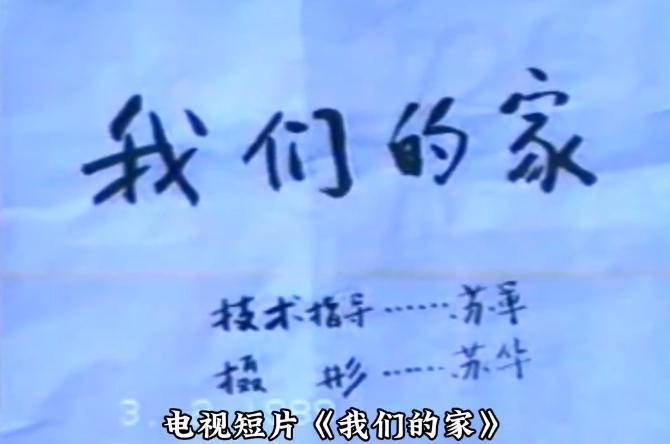 我们的家
技术指导……苏军
摄影……苏华
电视短片《我们的家》